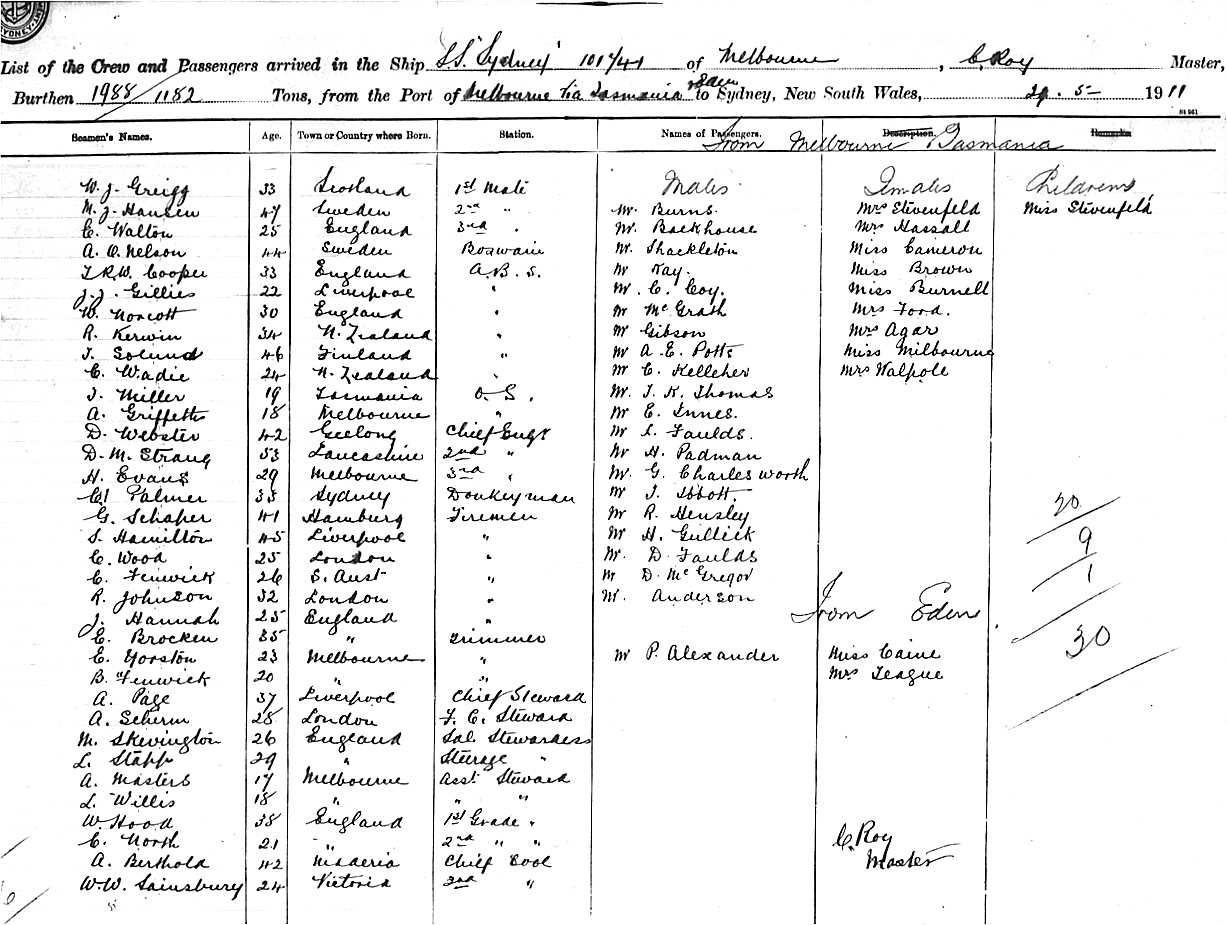 SYDNEY
List of the Crew and Passengers arrived in the Ship S.S. "Sydney" 101/41 of Melbourne, C. Roy Master,
Burthen 1988/1182 Tons, from the Port of Melbourne via Tasmania & Eden to Sydney, New South Wales, 29.5 1911
Seamen's Names. Age. Town or Country where Born. Station. Names of Passengers. Description. Remarks
From Melbourne Tasmania
W. J. Greigg 33 Scotland 1st Mate Males Females Childrens
M. J. Hansen 47 Sweden 2nd " Mr Burns. Mrs Stevenfeld Miss Stevenfeld
C. Walton 25 England 3rd " Mr. Backhouse Mrs Hassall
A. O. Nelson 44 Sweden Boswain Mr. Shackleton Miss Cameron
T. R. W. Cooper 33 England A.B.s. Mr Kay. Miss Brown
J. J. Gillies 22 Liverpool " Mr. C. Coy. Miss Burnell
W. Norcott 30 England " Mr McGrath Mrs Ford.
R. Kerwin 34 N. Zealand " Mr Gibson Mrs Agar
J. 46 Finland " Mr A. E. Potts Miss Milbourne
C. Wadie 24 N. Zealand " Mr C. Kelleher Mrs Walpole
J. Miller 19 Tasmania O.S. Mr. J. K. Thomas
A. Griffeths 18 Melbourne " Mr E. Innes.
D. Webster 42 Geelong Chief Engr Mr S. Faulds.
D. M. Strang 53 Lancashire 2nd " Mr H. Padman
H. Evans 29 Melbourne 3rd " Mr. G. Charlesworth
C. Palmer 35 Sydney Donkeyman Mr J. Ibbott.
G. Schaper 41 Hamburg Firemen Mr R. Hensley 20
S. Hamilton 45 Liverpool " Mr H. Gullick 9
C. Wood 25 London " Mr. D. Faulds 1
C. Fenwick 26 S. Aust " Mr D. McGregor
R. Johnson 32 London " Mr. Anderson
J. Hannah 25 England " From Eden.
E. Brocken 35 " Trimmer 30
E. Yorston 23 Melbourne " Mr P. Alexander Miss Caine
B. Fenwick 20 " " Mrs Teague
A. Page 37 Liverpool Chief Steward
A. Scherm 28 London F. C. Steward
M. Skevington 26 England Sal. Stewardess
L. Stapp 29 " Steerage "
A. Masters 17 Melbourne Asst Steward
L. Willis 18 " " "
W. Hood 38 England 1st Grade "
C. North 21 " 2nd " " C. Roy
A. Berthold 42 Chief Cook Master
W. W. Sainsbury 24 Victoria 2nd "